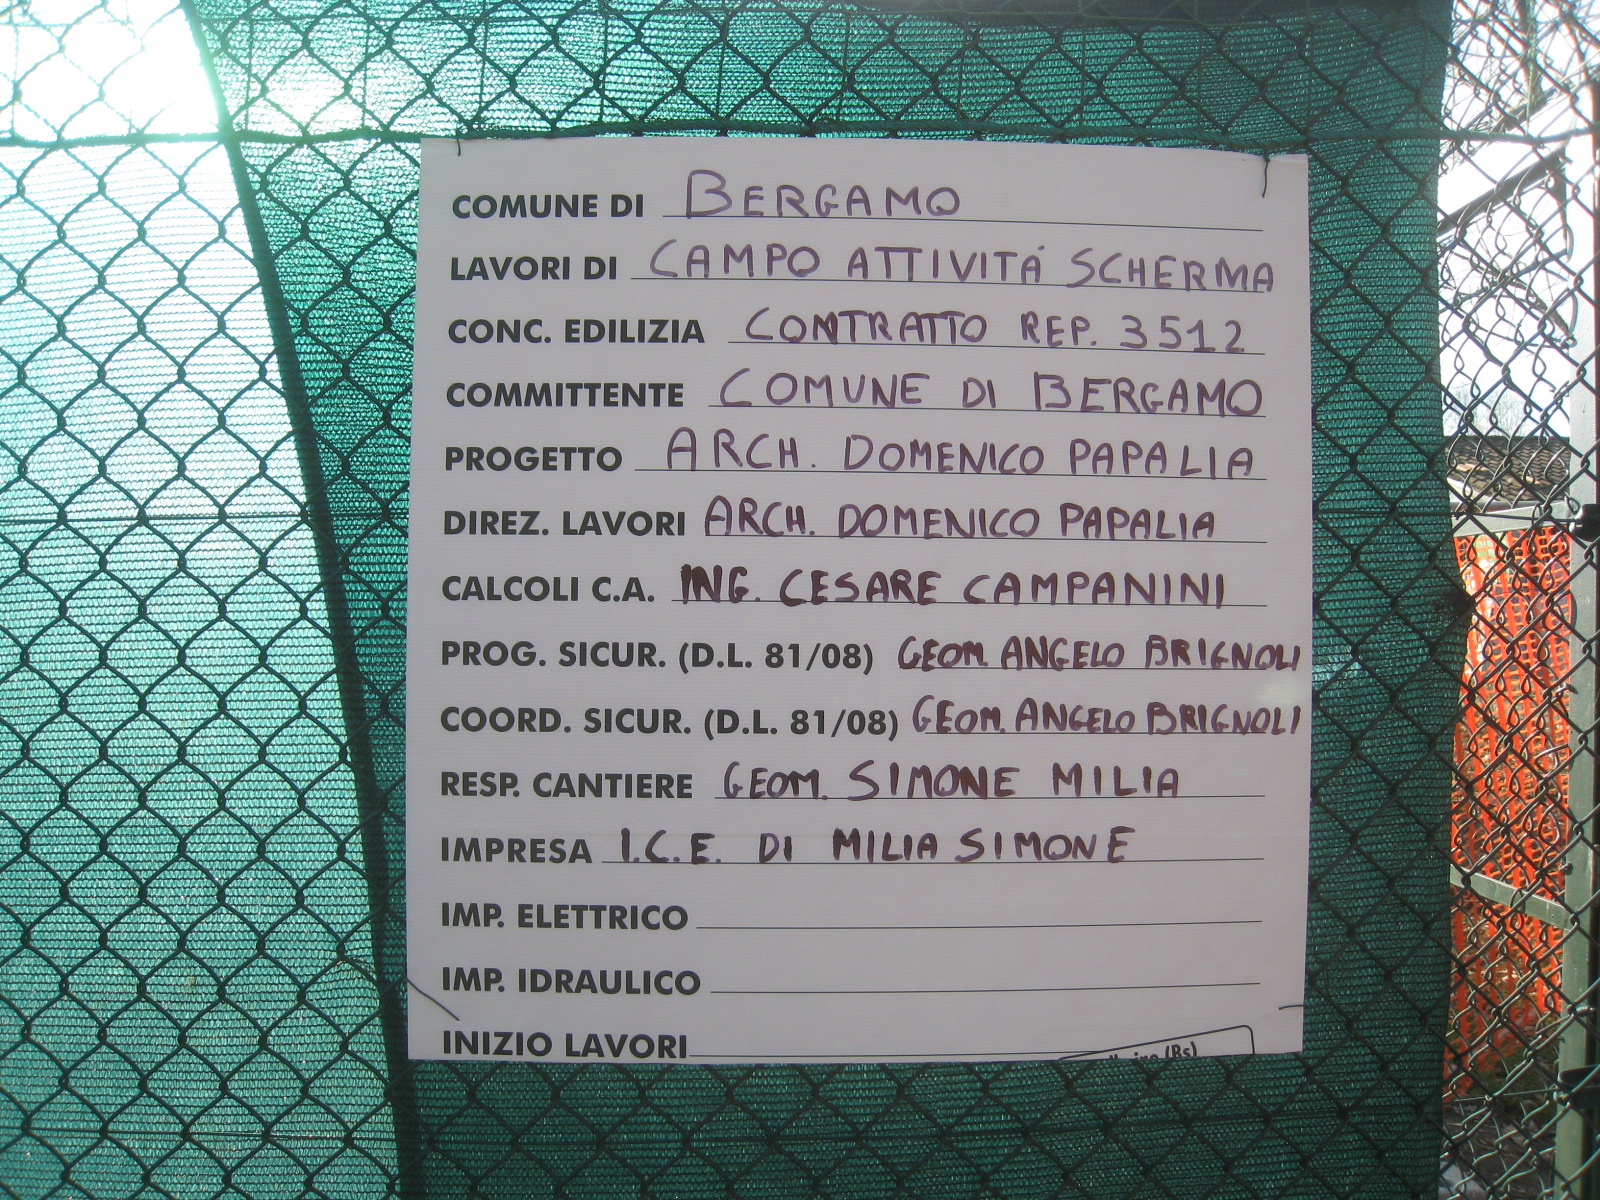 COMUNE DI BERGAMO
LAVORI DI CAMPO ATTIVITÁ SCHERMA
CONC. EDILIZIA CONTRATTO REP. 3512
COMMITTENTE COMUNE DI BERGAMO
PROGETTO ARCH. DOMENICO PAPALIA
DIREZ. LAVORI ARCH. DOMENICO PAPALIA
CALCOLI C.A. ING. CESARE CAMPANINI
PROG. SICUR. (D.L. 81/08) GEOM. ANGELO BRIGNOLI
COORD. SICUR. (D.L. 81/08) GEOM. ANGELO BRIGNOLI
RESP. CANTIERE GEOM. SIMONE MILIA
IMPRESA I.C.E. DI MILIA SIMONE
IMP. ELETTRICO
IMP. IDRAULICO
INIZIO LAVORI
(Bs)